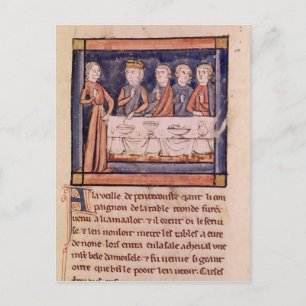 A la veille de pentecouste qant li com
paignon de la table reonde furẽt
uenu a kamaalot ⁊ il oeirent le seruise
⁊ len uouloit metre les tables a eure
de none lors entra en la sale a cheual une
mlt bele damoisele
⁊ fu uenue si grant
oirre que bn̄ le pooit len ueoir Car ses